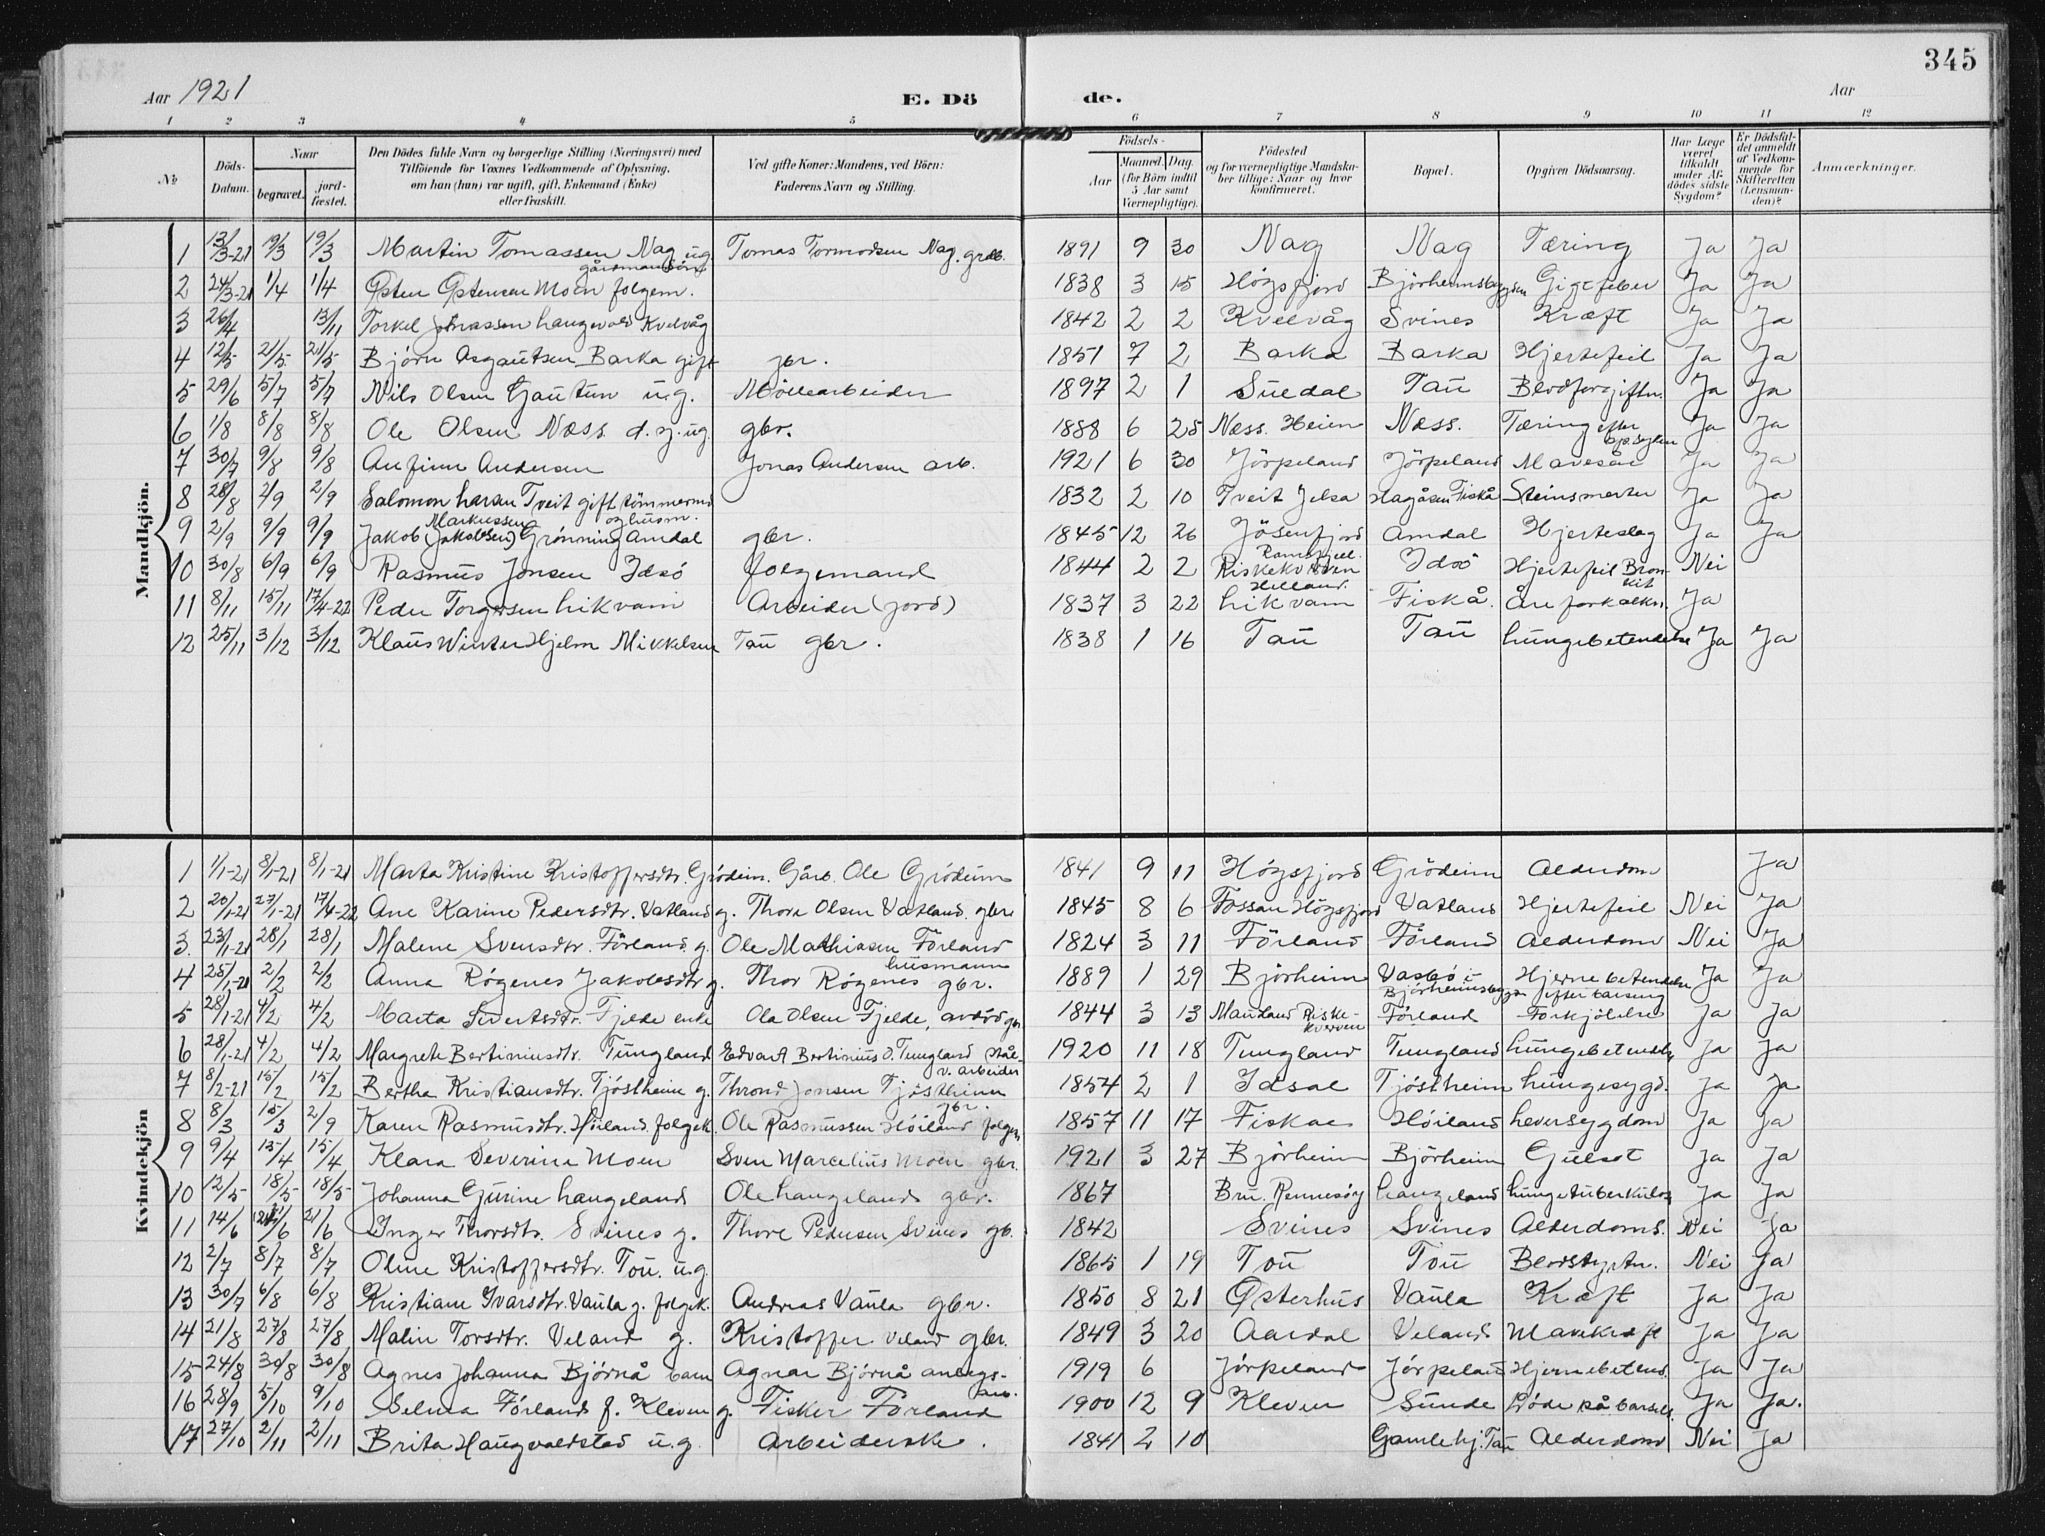 345
Aar 1921 E. Dö de. Aar
1 2 3 4 5 6 7 8 9 10 11 12
№ Döds-Datum. Naar begravet. jord-fæstet. Den Dödes fulde Navn og borgerlige Stilling (Næringsvei) med Tilföiende for Voxnes Vedkommende af Oplysning, om han (hun) var ugift, gift, Enkemand (Enke) eller fraskilt. Ved gifte Koner: Mandens, ved Börn: Faderens Navn og Stilling. Födsels- Aar Maaned. Dag. (for Börn indtil 5 Aar samt Værnepligtige). Födested og for værnepligtige Mandska-ber tillige: Naar og hvor konfirmeret. Bopæl. Opgiven Dödsaarsag. Har Læge været tilkaldt under Af-dödes sidste Sygdom? Er Dödsfal-det anmeldt af Vedkom-mende for Skifteretten (Lensman-den)? Anmærkninger.
Mandkjön.
1 13/3-21 19/3 19/3 Martin Tomassen Nag ug. gårdmandsön Tomas Tormodsen Nag. grdb. 1891 9 30 Nag Nag Tæring Ja Ja
2 24/3-21 1/4 1/4 Østen Østensen Moen folgem. 1838 3 15 Högsfjord Björheimsbygden Gigtfeber Ja Ja
3 26/4 13/11 Torkel Jonassen Langevold Kvelvåg 1842 2 2 Kvelvåg Svines Kræft Ja Ja
4 12/5 21/5 21/5 Björn Asgautsen Barka gift gbr. 1851 7 2 Barka Barka Hjertefeil Ja Ja
5 29/6 5/7 5/7 Nils Olsen Gautun u.g. Möllearbeider 1897 2 1 Suldal Tau Blodforgiftn. Ja Ja
6 1/8 8/8 8/8 Ole Olsen Næss d. y. ug. gbr. 1888 6 25 Næss. Heien Næss. Tæring efter Ja Ja
7 30/7 9/8 9/8 Anfinn Andersen Jonas Andersen arb. 1921 6 30 Jörpeland Jörpeland Mavesår Ja Ja
8 28/8 2/9 2/9 Salomon Larsen Tveit gift tömmermd og husm. 1832 2 10 Tveit Jelsa Hagåsen Fiskå Steinsmerter Ja Ja
9 2/9 9/9 9/9 Jakob Markussen (Jakobsen) Grönning Amdal gbr. 1845 12 26 Jösenfjord Amdal Hjerteslag Ja Ja
10 30/8 6/9 6/9 Rasmus Jonsen Idsö Folgemand 1844 2 2 Ramsfjell. Riskekverven Idsö Hjertefeil Bronkit Nei
11 8/11 15/11 17/4-22 Peder Torgersen Likvam Arbeider (jord) 1837 3 22 Helland. Likvam Fiskå. Åreforkalkn. Ja
12 25/11 3/12 3/12 Klaus Winter Hjelm Mikkelsen Tau gbr. 1838 1 16 Tau Tau Lungebetendelse Ja Ja
Kvindekjön
1 1/1-21 8/1-21 8/1-21 Marta Kristine Kristoffersdtr. Grödem. Gårb. Ole Grödeim 1841 9 11 Högsfjord Grödeim Alderdom Ja
2 20/1-21 27/1-21 17/4-22 Ane Karine Pedersdtr. Vatland g. Thore Olsen Vatland. gbr. 1845 8 6 Fossan Högsfjord Vatland Hjertefeil Nei Ja
3. 23/1-21 28/1 28/1 Malene Svensdtr. Förland g. Ole Mathiasen Förland husmann 1824 3 11 Förland Förland Alderdom Nei Ja
4 25/1-21 2/2 2/2 Anna Rögenes Jakobsdtr g. Thor Rögenes gbr. 1889 1 29 Björheim Vasbö i Björheimsbygd Hjernebetendelse efter barseng Ja Ja
5 28/1-21 4/2 4/2 Marta Sivertsdtr. Fjelde enke Ola Olsen Fjelde, avdöd gbr 1844 3 13 Mauland Riske-kverven Förland Forkjölelse Ja Ja
6 28/1-21 4/2 4/2 Margrete Bertiniusdtr. Tungland Edvart Bertinius O. Tungland stål-v. arbeider 1920 11 18 Tungland Tungland Lungebetendelse Ja Ja
7 8/2-21 15/2 15/2 Bertha Kristiansdtr. Tjöstheim g. Thrond Jonsen Tjöstheim gbr. 1854 2 1 Idsal Tjöstheim Lungesygd. Ja Ja
8 8/3 15/3 2/9 Karen Rasmusdtr. Höiland folgek. Ole Rasmussen Höiland folgem 1857 11 17 Fiskaa Höiland Leversygdom Ja Ja
9 9/4 15/4 15/4 Klara Severine Moen Sven Marcelius Moen gbr. 1921 3 27 Björheim Björheim Gulsot Ja Ja
10 12/5 18/5 18/5 Johanna Gurine Langeland Ole Langeland gbr. 1867 Bru. Rennesöy Langeland Lungetuberkulos Ja Ja
11 14/6 21/6 21/6 Inger Thorsdtr. Svines g. Thore Pedersen Svines gb. 1842 Svines Svines Alderdoms. Nei Ja
12 2/7 8/7 8/7 Oline Kristoffersdtr. Tou. u.g. 1865 1 19 Tou Tou Blodstyrtn. Nei Ja
13 30/7 6/8 6/8 Kristiane Ivarsdtr. Vaula g. folgek. Andreas Vaula gbr. 1850 8 21 Østerhus Vaula Kræft Ja Ja
14 21/8 27/8 27/8 Malin Torsdtr. Veland g. Kristoffer Veland gbr. 1849 3 20 Aardal Veland Mavekræft Ja Ja
15 24/8 30/8 30/8 Agnes Johanna Björnå barn Agnar Björnå anlegs-arb. 1919 6 Jörpeland Jörpeland Hjernebetend. Ja Ja
16 28/9 5/10 9/10 Selma Förland f. Kleven g. Fisker Förland 1900 12 9 Kleven Sunde Döde på barsels. Ja Ja.
17 27/10 2/11 2/11 Brita Haugvaldstad u.g. Arbeiderske. 1841 2 10 Gamlehj. Tau Alderdom Nei Ja